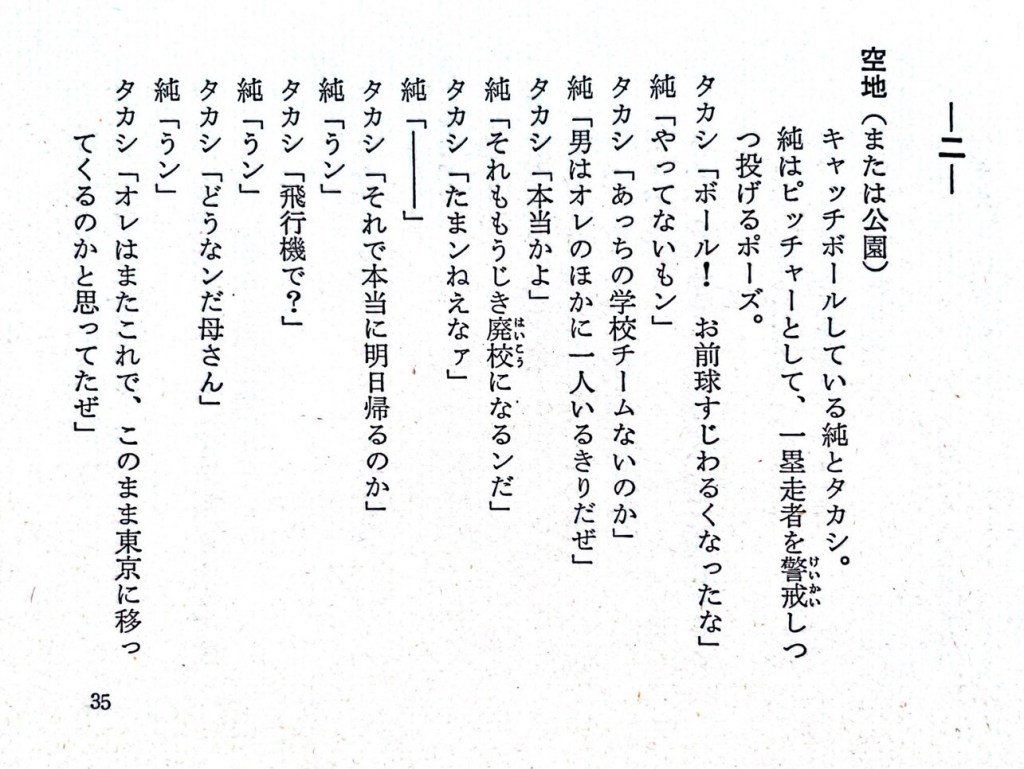 ―二―
空地（または公園）
キャッチボールしている純とタカシ。
純はピッチャーとして、一塁走者を警戒しつ
つ投げるポーズ。
タカシ「ボール！　お前球すじわるくなったな」
純「やってないもン」
タカシ「あっちの学校チームないのか」
純「男はオレのほかに一人いるきりだぜ」
タカシ「本当かよ」
純「それももうじき廃校になるンだ」
タカシ「たまンねえなァ」
純「―――」
タカシ「それで本当に明日帰るのか」
純「うン」
タカシ「飛行機で？」
純「うン」
タカシ「どうなンだ母さん」
純「うン」
タカシ「オレはまたこれで、このまま東京に移っ
てくるのかと思ってたぜ」
けいかい
はいこう
35